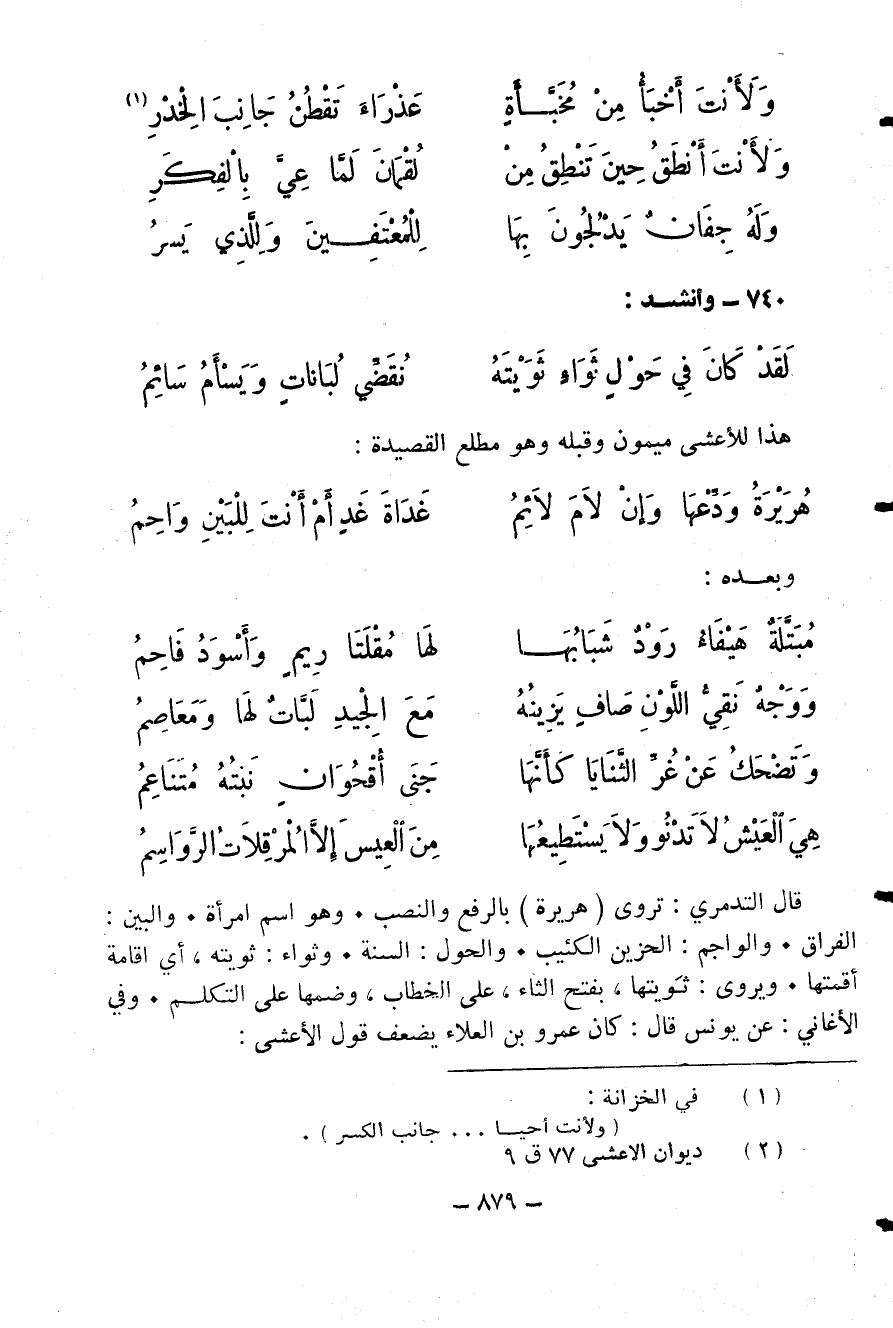 وَلَأَنْتَ أَخْبَأُ مِنْ مُخَبَّـــأَةٍ عَذْرَاءَ تَقْطُنُ جَانِبَ الْخِدْرِ (١)
وَلَأَنْتَ أَنْطَقُ حِينَ تَنْطِقُ مِنْ لُقْمَانَ لَمَّا عِيَّ بِالْفِكَرِ
وَلَهُ جِفَانٌ يَدْلُجُونَ بِهَا لِلْمُعْتَفِـــينَ وَلِلَّذِي يَسرُ
٧٤٠ ـ وأنشـد :
لَقَدْ كَانَ فِي حَوْلٍ ثَوَاءٍ ثَوَيْتَهُ نُقَضِّي لُبَانَاتٍ وَيَسْأَمُ سَائِمُ
هذا للأعشى ميمون وقبله وهو مطلع القصيدة :
هُرَيْرَةُ وَدِّعْهَا وَإِنْ لاَمَ لاَئِمُ غَدَاةَ غَدٍ أَمْ أَنْتَ لِلْبَيْنِ وَاجِمُ
وبعـــده :
مُبَتَّلَةٌ هَيْفَاءُ رَوْدٌ شَبَابُهَـــا لَهَا مُقْلَتَا رِيمٍ وَأَسْوَدُ فَاحِمُ
وَوَجْهٌ نَقِيُّ اللَّوْنِ صَافٍ يَزِينُهُ مَعَ الْجِيدِ لَبَّاتٌ لَهَا وَمَعَاصِمُ
وَتَضْحَكُ عَنْ غُرِّ الثَّنَايَا كَأَنَّهَا جَنَى أُقْحُوَانٍ نَبْتُهُ مُتَنَاعِمُ
هِيَ الْعَيْشُ لاَ تَدْنُو وَلاَ يَسْتَطِيعُهَا مِنَ الْعِيسِ إِلاَّ الْمُرْقِلاَتُ الرَّوَاسِمُ
قال التدمري : تروى ( هريرة ) بالرفع والنصب ٠ وهو اسم امرأة ٠ والبين :
الفراق ٠ والواجم : الحزين الكئيب ٠ والحول : السنة ٠ وثواء : ثويته ، أي اقامة
أقمتها ٠ ويروى : ثَويتها ، بفتح الثاء ، على الخطاب ، وضمها على التكلـم ٠ وفي
الأغاني : عن يونس قال : كان عمرو بن العلاء يضعف قول الأعشى :
( ١ ) في الخزانة :
( ولأنت أحيـــا ... جانب الكسر ) .
( ٢ ) ديوان الاعشى ٧٧ ق ٩
ـ ٨٧٩ ـ